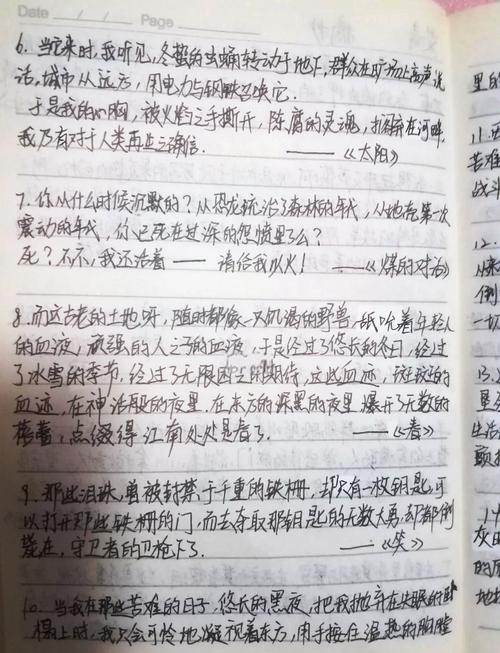 Date / Page
6. 当它来时,我听见,冬蛰的虫蛹转动于地下,群众在旷场上高声说
话,城市从远方,用电力与钢铁召唤它.
于是我的心胸,被火焰之手撕开,陈腐的灵魂,抛弃在河畔,
我乃有对于人类再生之确信. ——《太阳》
7. 你从什么时候沉默的?从恐龙统治了森林的年代,从地壳第一次
震动的年代,你已死在过深的怨愤里了么?
死?不,不,我还活着——请给我以火! ——《煤的对话》
8. 而这古老的土地呀,随时都像一只饥渴的野兽,舐吮着年轻人
的血液,顽强的人之子的血液,于是经过了悠长的冬日,经过
了冰雪的季节,经过了无限困乏的期待,这些血迹,斑斑的
血迹,在神话般的夜里,在东方的深黑的夜里,爆开了无数的
蓓蕾,点缀得江南处处是春了. ——《春》
9. 那些泪珠,曾被封禁于千重的铁栅,却只有一枚钥匙,可
以打开那些铁栅的门,而去夺取那钥匙的无数大勇,却都倒
毙在,守卫者的刀枪下了. ——《笑》
10. 当我在那些苦难的日子,悠长的黑夜,把我抛弃在失眠的卧
榻上时,我只会可怜地凝视着东方,用手按住温热的胸膛
里的
11.
苦难
战斗
12.
从来
倒
一切
13.
生活
颤抖
灰
的
地